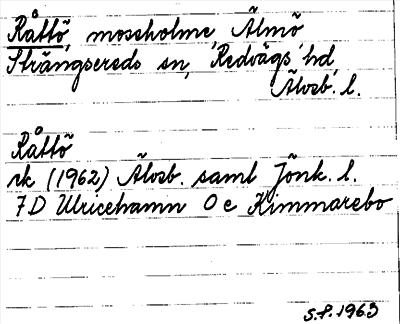 Råttö, moseholme Älmö
Strängsereds sn, Redvägs hd,
Älvsb. l.
Råttö
rk (1962) Älvsb. samt Jönk. l.
7D Ulricehamn 0e Kimmarebo
S.F. 1963